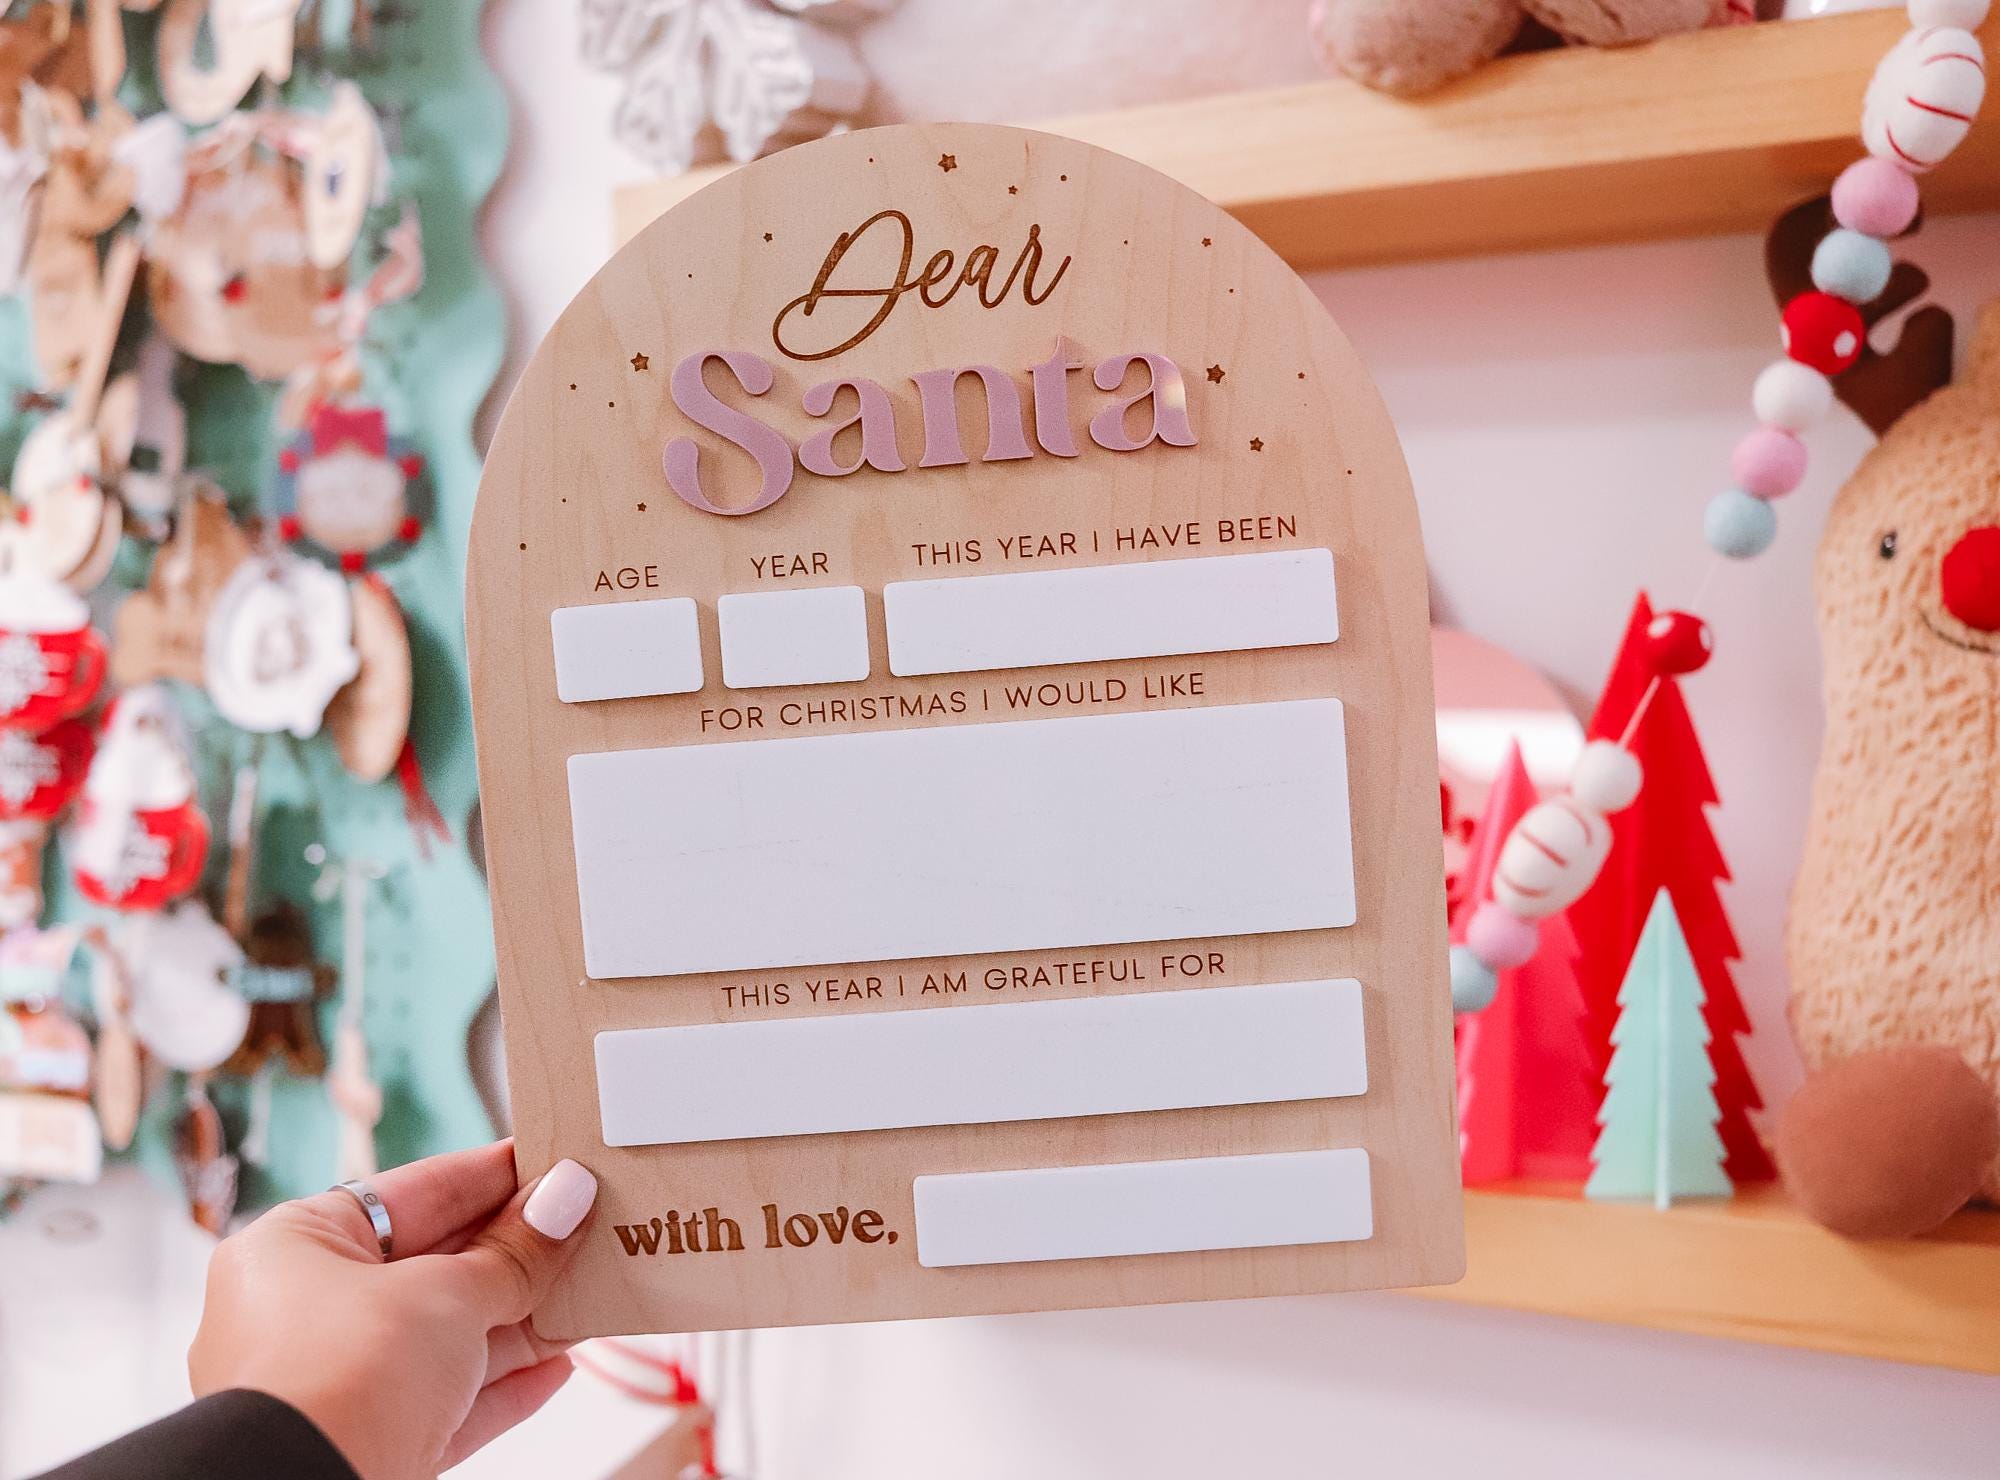 Dear
Santa
AGE YEAR THIS YEAR I HAVE BEEN
FOR CHRISTMAS I WOULD LIKE
THIS YEAR I AM GRATEFUL FOR
with love,